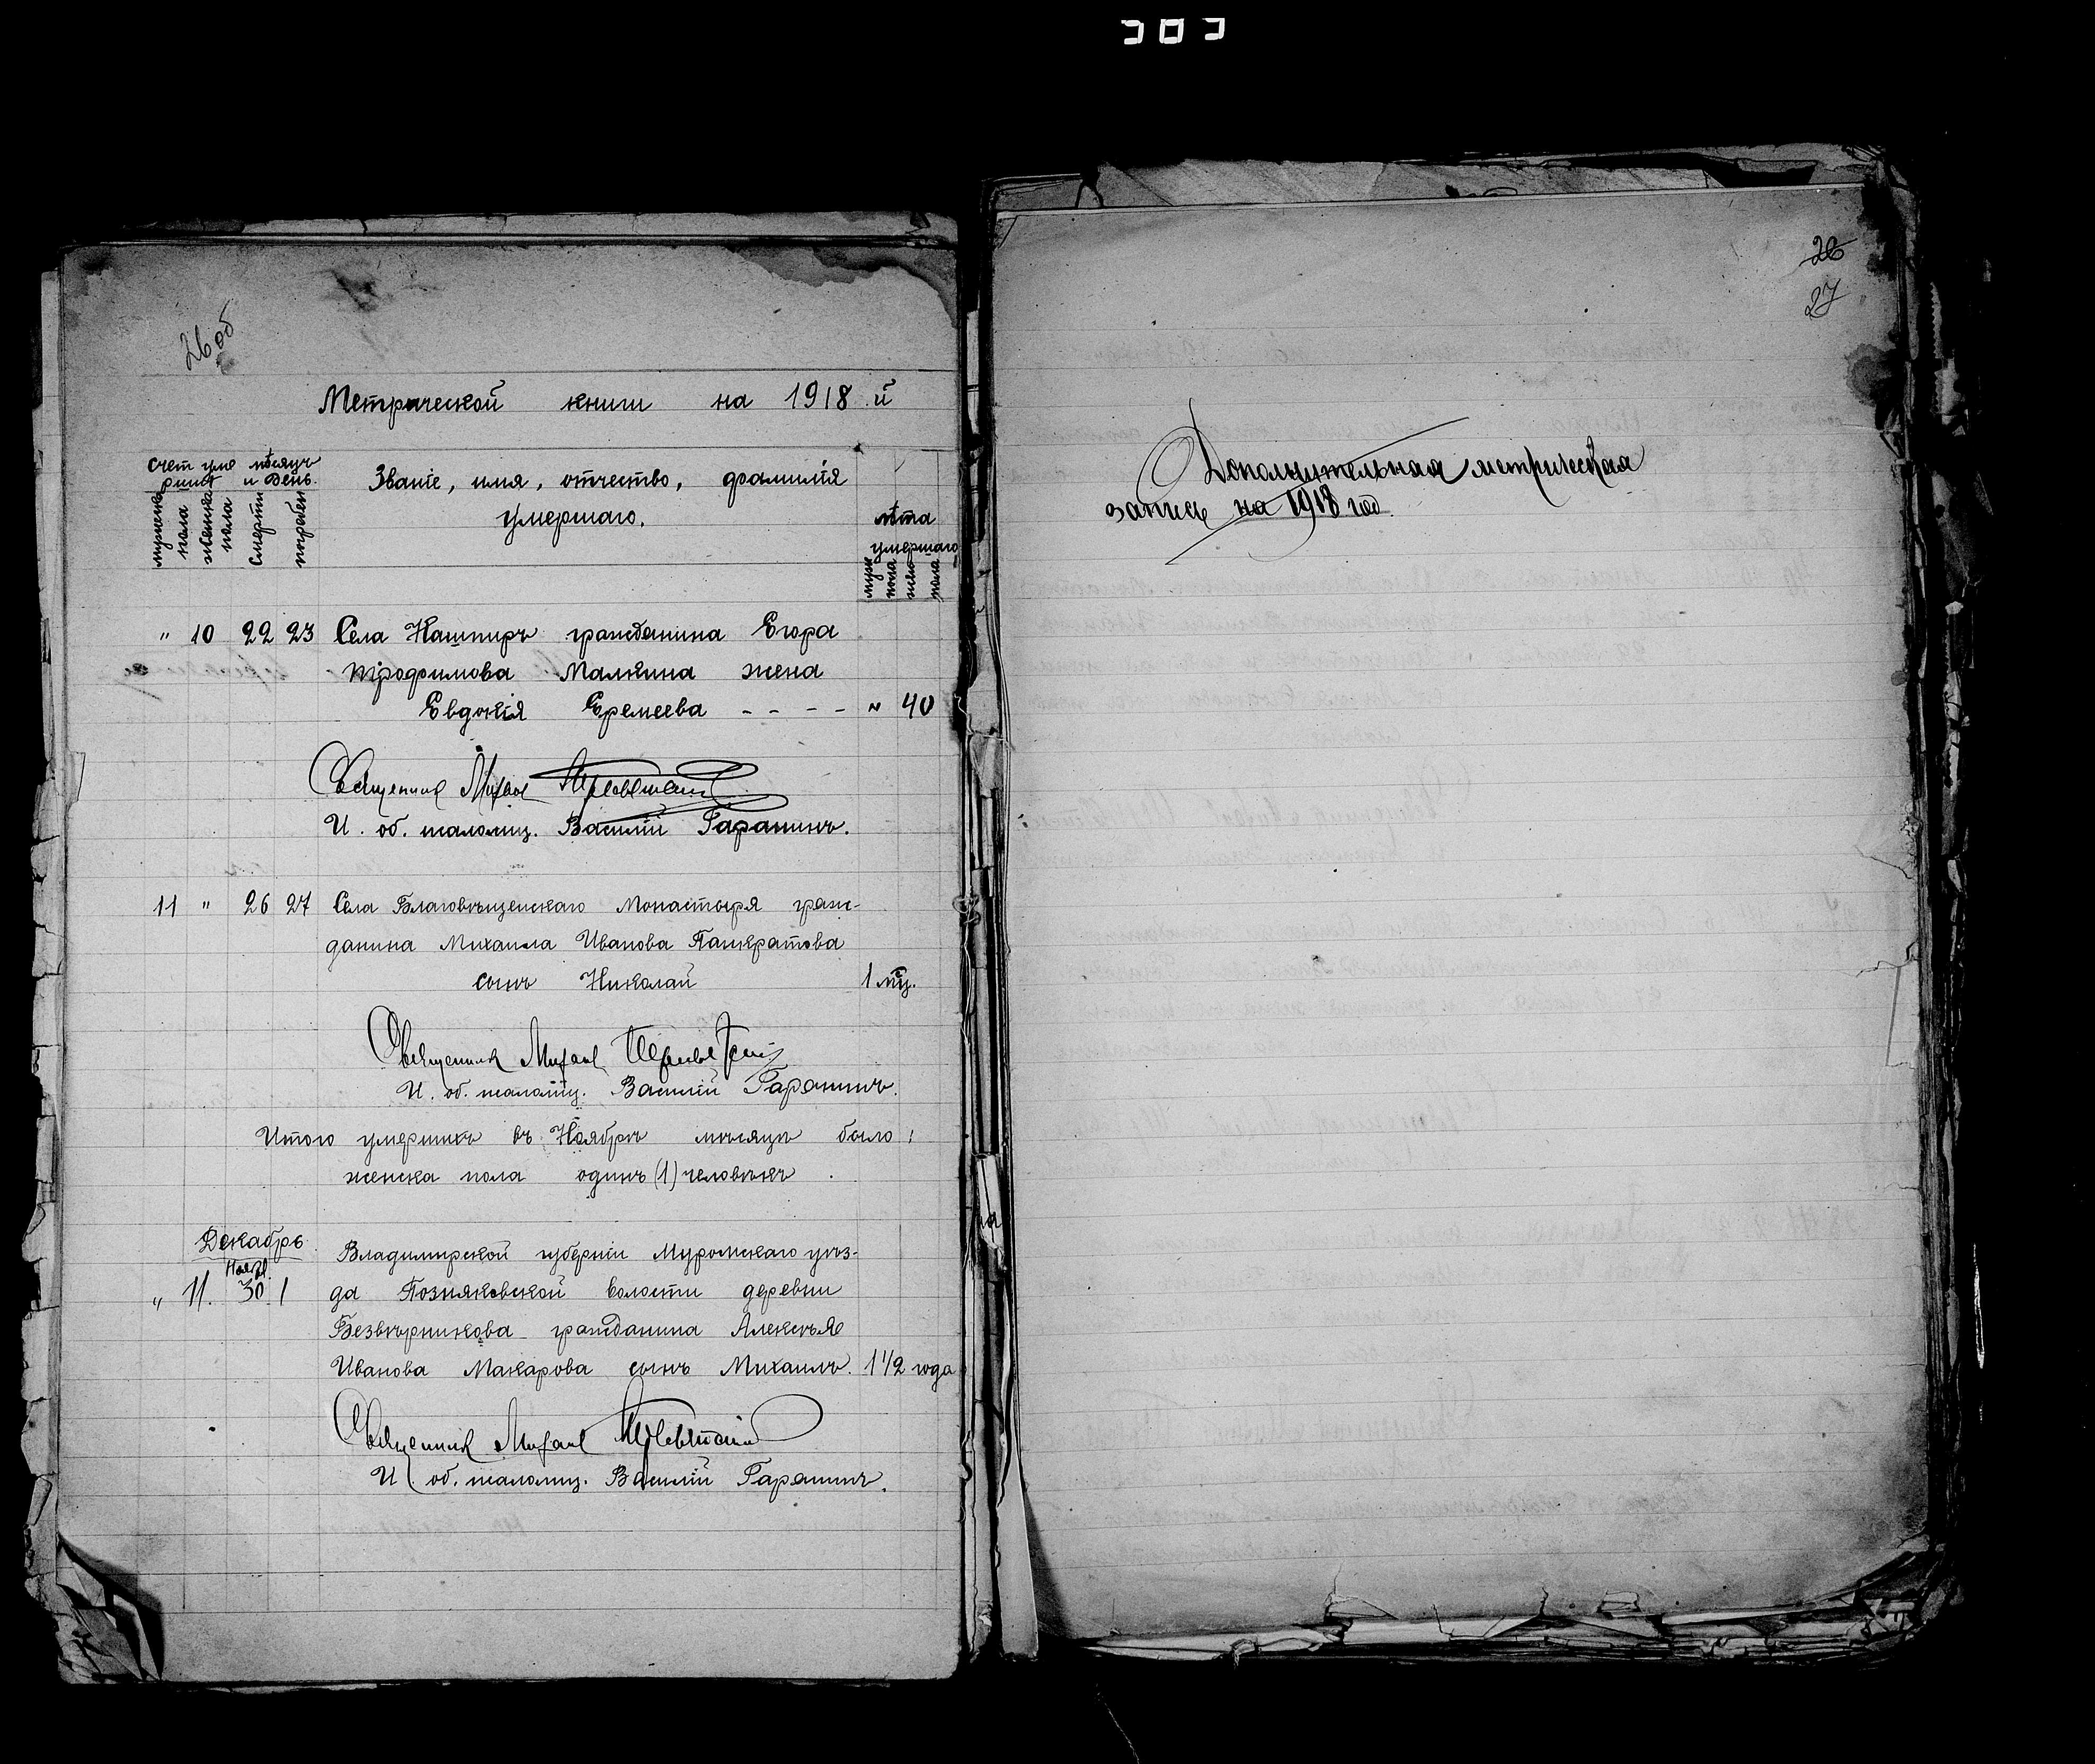 26 об
Метрической книги на 1918 й
счет уме мѣсяцъ
ршихъ и день.
мужска пола
женска пола
смерти
погребен
Званіе, имя, отчество, фамилія
умершаго.
лѣта
умершаго
муж пола
жен пола
„ 10 22 23 Села Кашпиръ гражданина Егора
Трофимова Малкина жена
Евдокія Еремеева - - - - „ 40
Священник Михаил
И. об. псаломщ. Василій Гаранинъ.
11 „ 26 27 Села Благовѣщенскаго Монастыря граж-
данина Михаила Иванова Панкратова
сынъ Николай 1 мц.
Священник Михаил
И. об. псаломщ. Василій Гаранинъ.
Итого умершихъ въ Ноябрѣ мѣсяцѣ было:
женска пола одинъ (1) человѣкъ.
Декабрь. Владимирской губерніи Муромскаго уѣз-
Нояб.
„ 11. 30 1 да Позняковской волости деревни
Безвѣрникова гражданина Алексѣя
Иванова Макарова сынъ Михаилъ. 1 1/2 года
Священник Михаил
И. об. псаломщ. Василій Гаранинъ.
26
27
Дополнительная метрическая
запись на 1918 год.